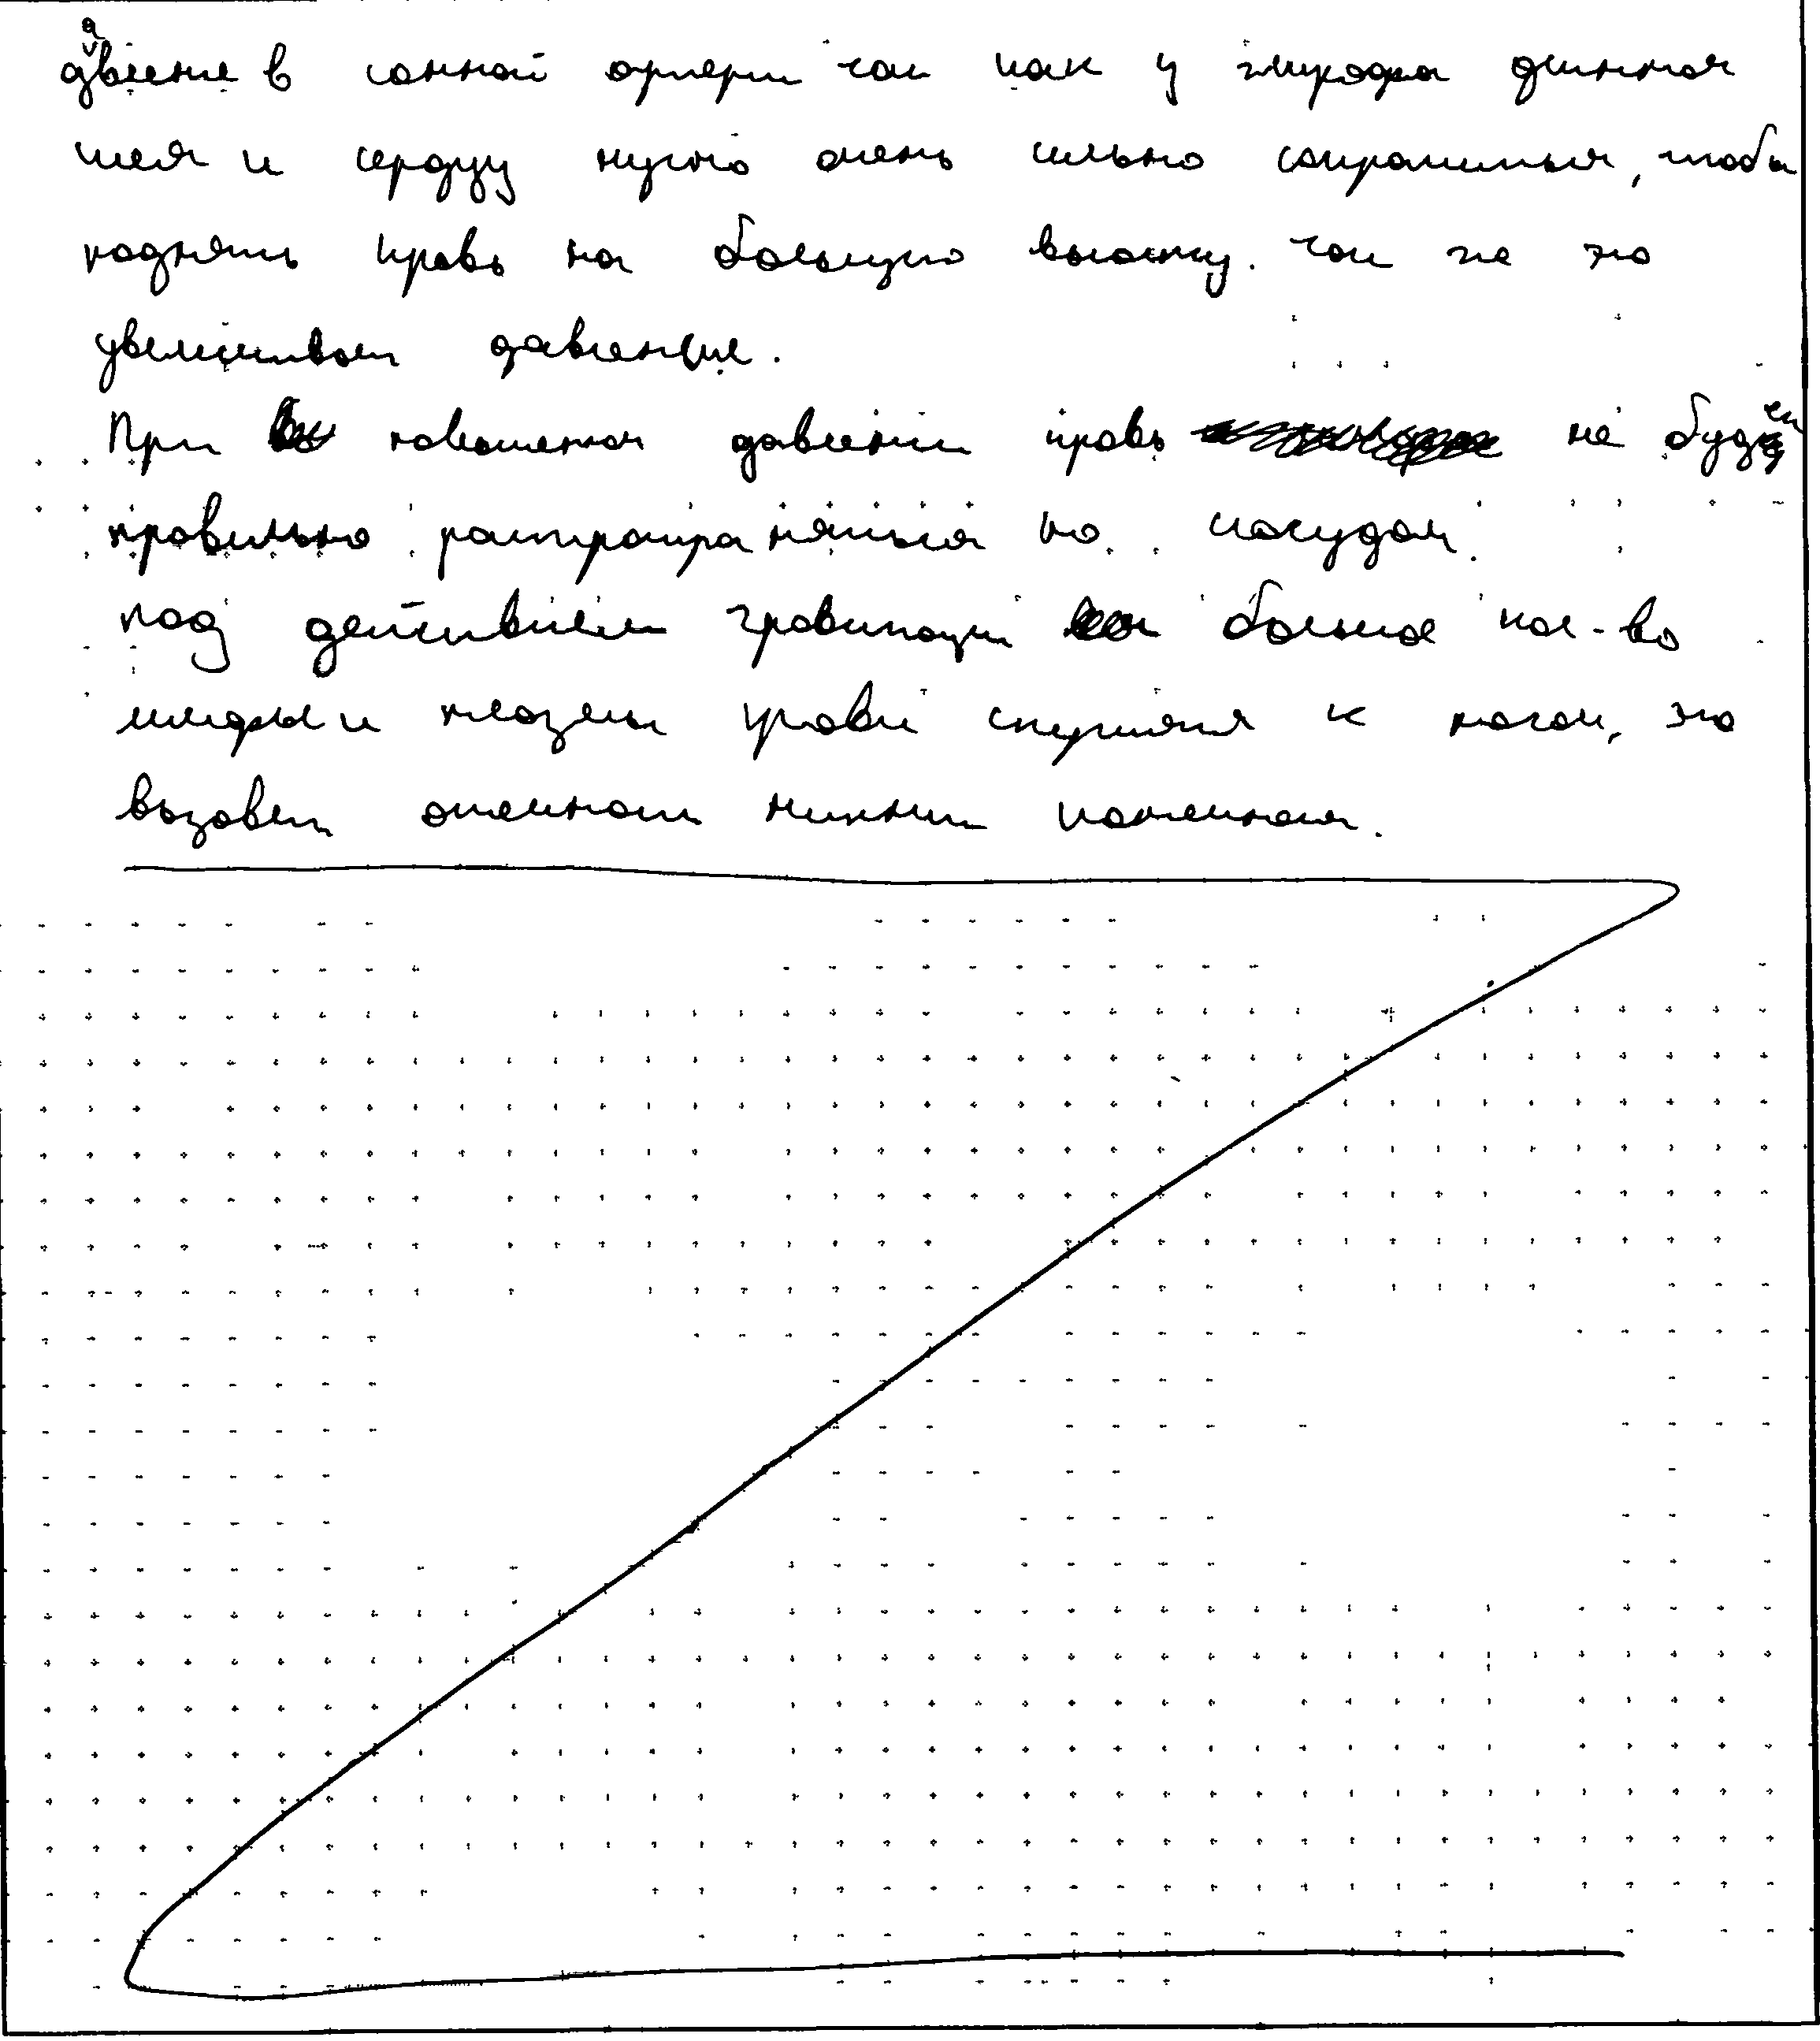 давление в сонной артерии так как у жирафа длинная
шея и сердцу нужно очень сильно сокращаться, чтобы
поднять кровь на большую высоту. так же это
увеличивает давление.
При повышенном давлении кровь не будет
правильно распространяться по сосудам.
под действием гравитации большое кол-во
лимфы и плазмы крови спустятся к ногам, это
вызовет отечность нижних конечностей.